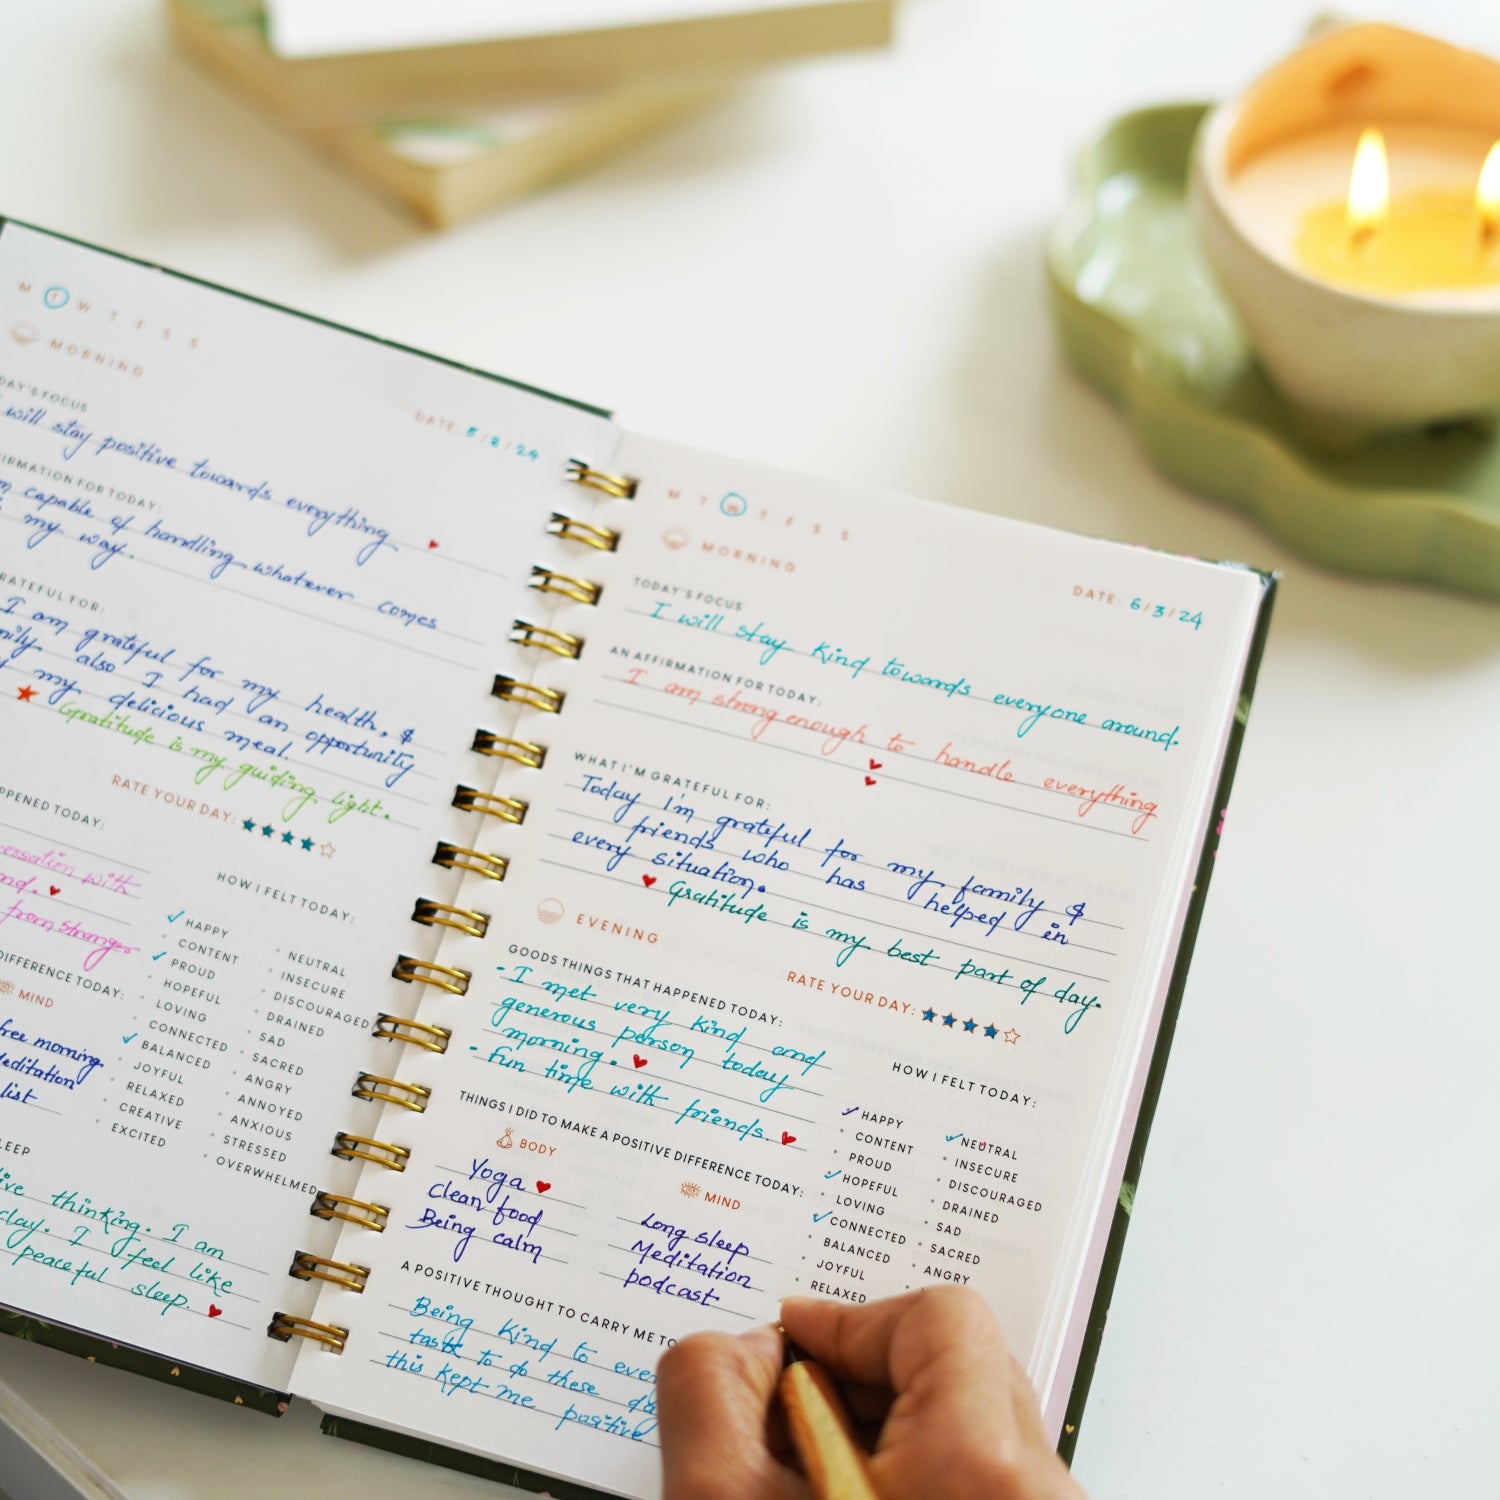 M T W T F S S
MORNING
DATE: 5/2/24
DAY'S FOCUS
will stay positive towards everything
AFFIRMATION FOR TODAY:
capable of handling whatever comes
my way.
GRATEFUL FOR:
I am grateful for my health, &
also I had an opportunity
my delicious meal.
Gratitude is my guiding light.
RATE YOUR DAY:
HAPPENED TODAY:
with
from stranger
HOW I FELT TODAY:
HAPPY
CONTENT
PROUD
HOPEFUL
LOVING
CONNECTED
BALANCED
JOYFUL
RELAXED
CREATIVE
EXCITED
NEUTRAL
INSECURE
DISCOURAGED
DRAINED
SAD
SACRED
ANGRY
ANNOYED
ANXIOUS
STRESSED
OVERWHELMED
DIFFERENCE TODAY:
MIND
free morning
Meditation
list
SLEEP
thinking. I am
I feel like
peaceful sleep.
M T W T F S S
MORNING
DATE: 6/3/24
TODAY'S FOCUS
I will stay kind towards everyone around.
AN AFFIRMATION FOR TODAY:
I am strong enough to handle everything
WHAT I'M GRATEFUL FOR:
Today I'm grateful for my family &
friends who has helped in
every situation.
Gratitude is my best part of day.
EVENING
RATE YOUR DAY:
GOODS THINGS THAT HAPPENED TODAY:
- I met very kind and
generous person today
morning.
- Fun time with friends.
HOW I FELT TODAY:
HAPPY
CONTENT
PROUD
HOPEFUL
LOVING
CONNECTED
BALANCED
JOYFUL
RELAXED
NEUTRAL
INSECURE
DISCOURAGED
DRAINED
SAD
SACRED
ANGRY
THINGS I DID TO MAKE A POSITIVE DIFFERENCE TODAY:
BODY
Yoga
Clean food
Being calm
MIND
Long sleep
Meditation
podcast
A POSITIVE THOUGHT TO CARRY ME TO
Being kind to
task to do these
this kept me positive